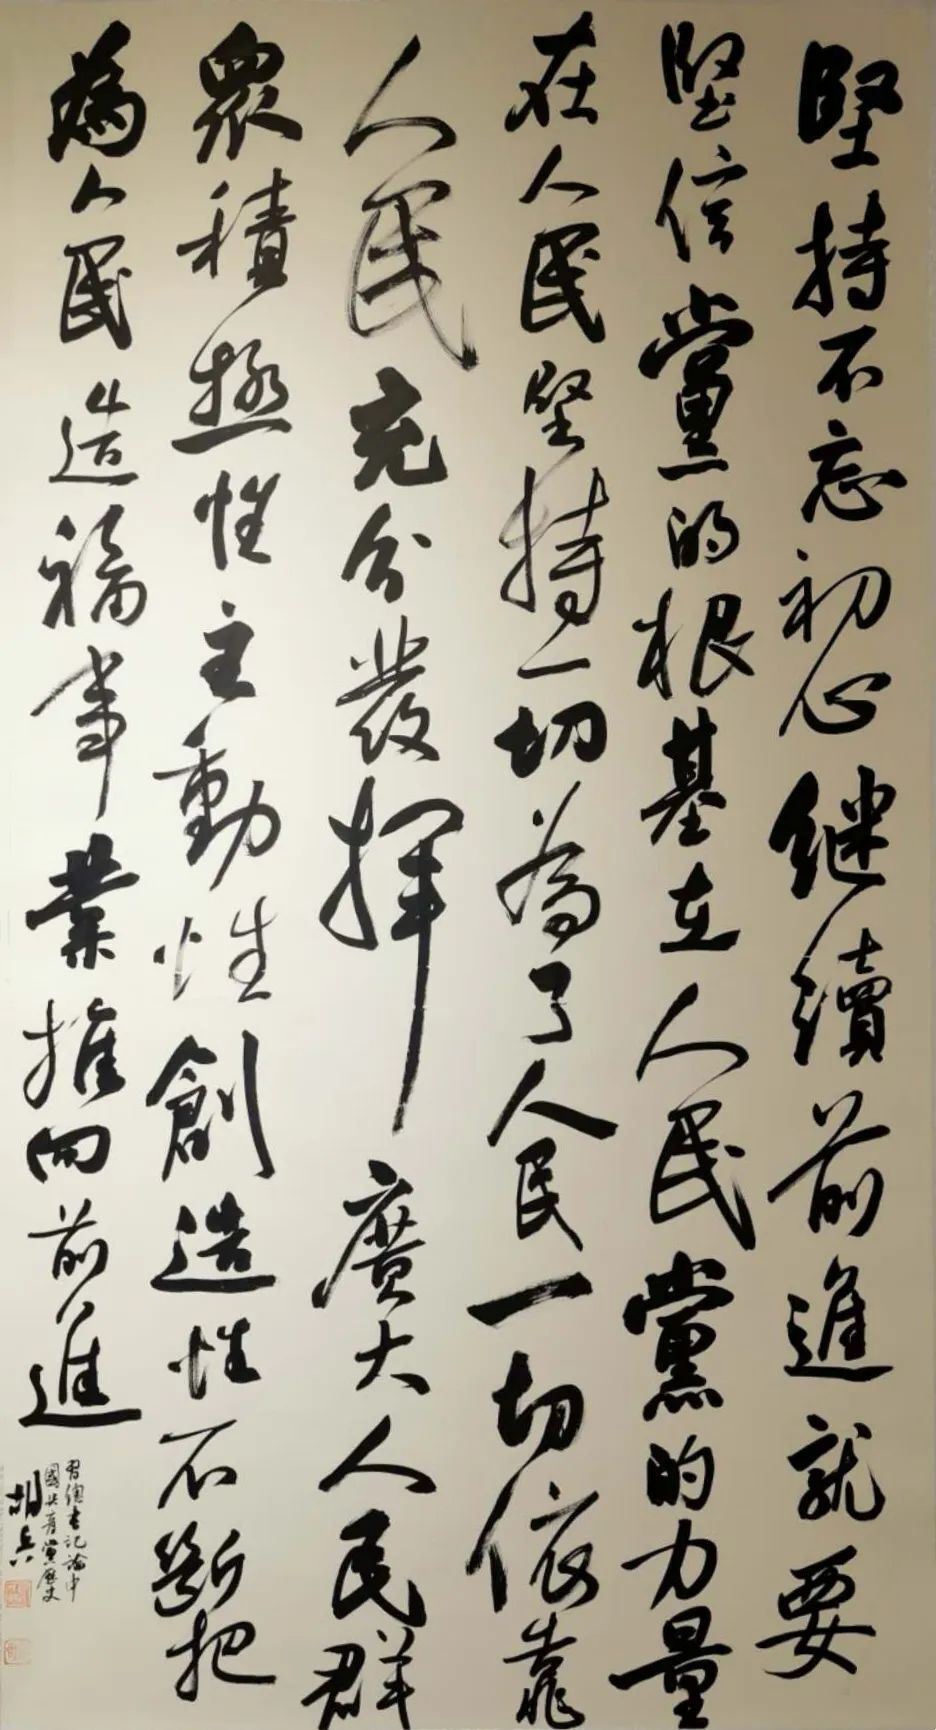 堅持不忘初心继續前進就要
堅信黨的根基在人民黨的力量
在人民堅持一切為了人民一切依靠
人民充分發揮廣大人民群
眾積極性主動性創造性不斷把
為人民造福事業推向前進
習總書記論中
國共產黨歷史
胡兵